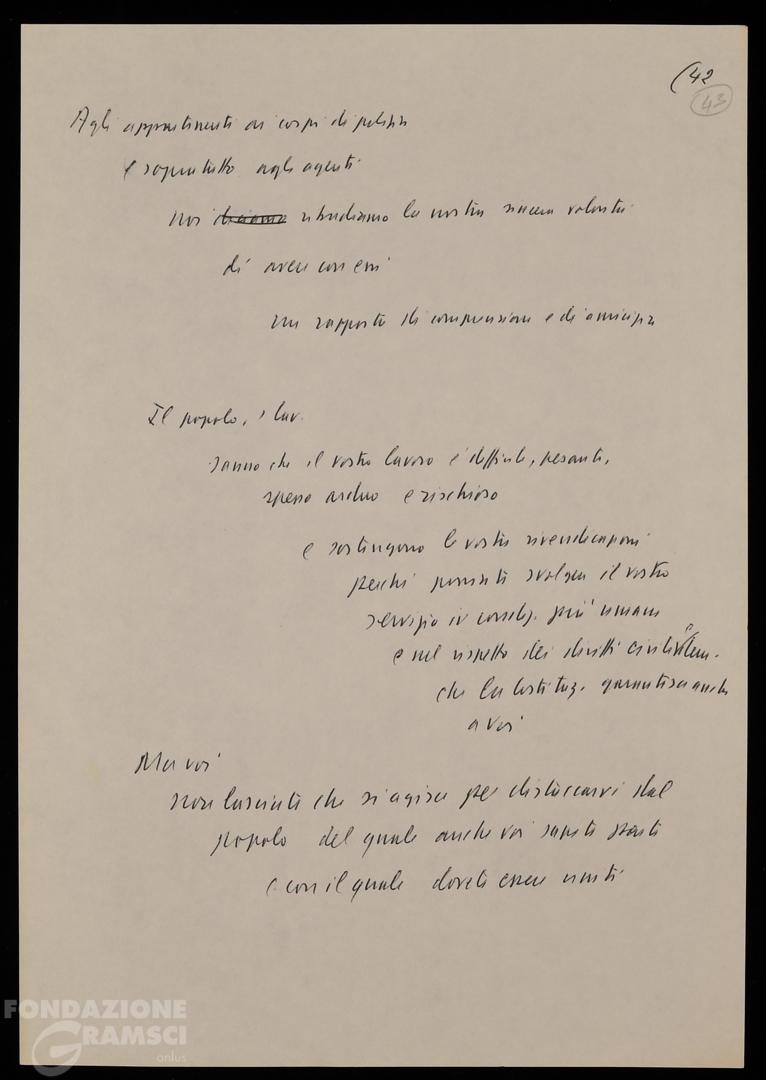 (42
43
Agli appartenenti ai corpi di polizia
e soprattutto agli agenti
noi diciamo ribadiamo la nostra sincera volontà
di avere con essi
un rapporto di comprensione e di amicizia
Il popolo, i lav.
sanno che il vostro lavoro è difficile, pesante,
spesso arduo e rischioso
e sostengono le vostre rivendicazioni
perché possiate svolgere il vostro
servizio in condiz. più umane
e nel rispetto dei diritti civili e
che la Costituz. garantisce anche
a voi
Ma voi
non lasciate che si agisca per distaccarvi dal
popolo del quale anche voi siete parte
e con il quale dovete essere uniti
FONDAZIONE
GRAMSCI
onlus